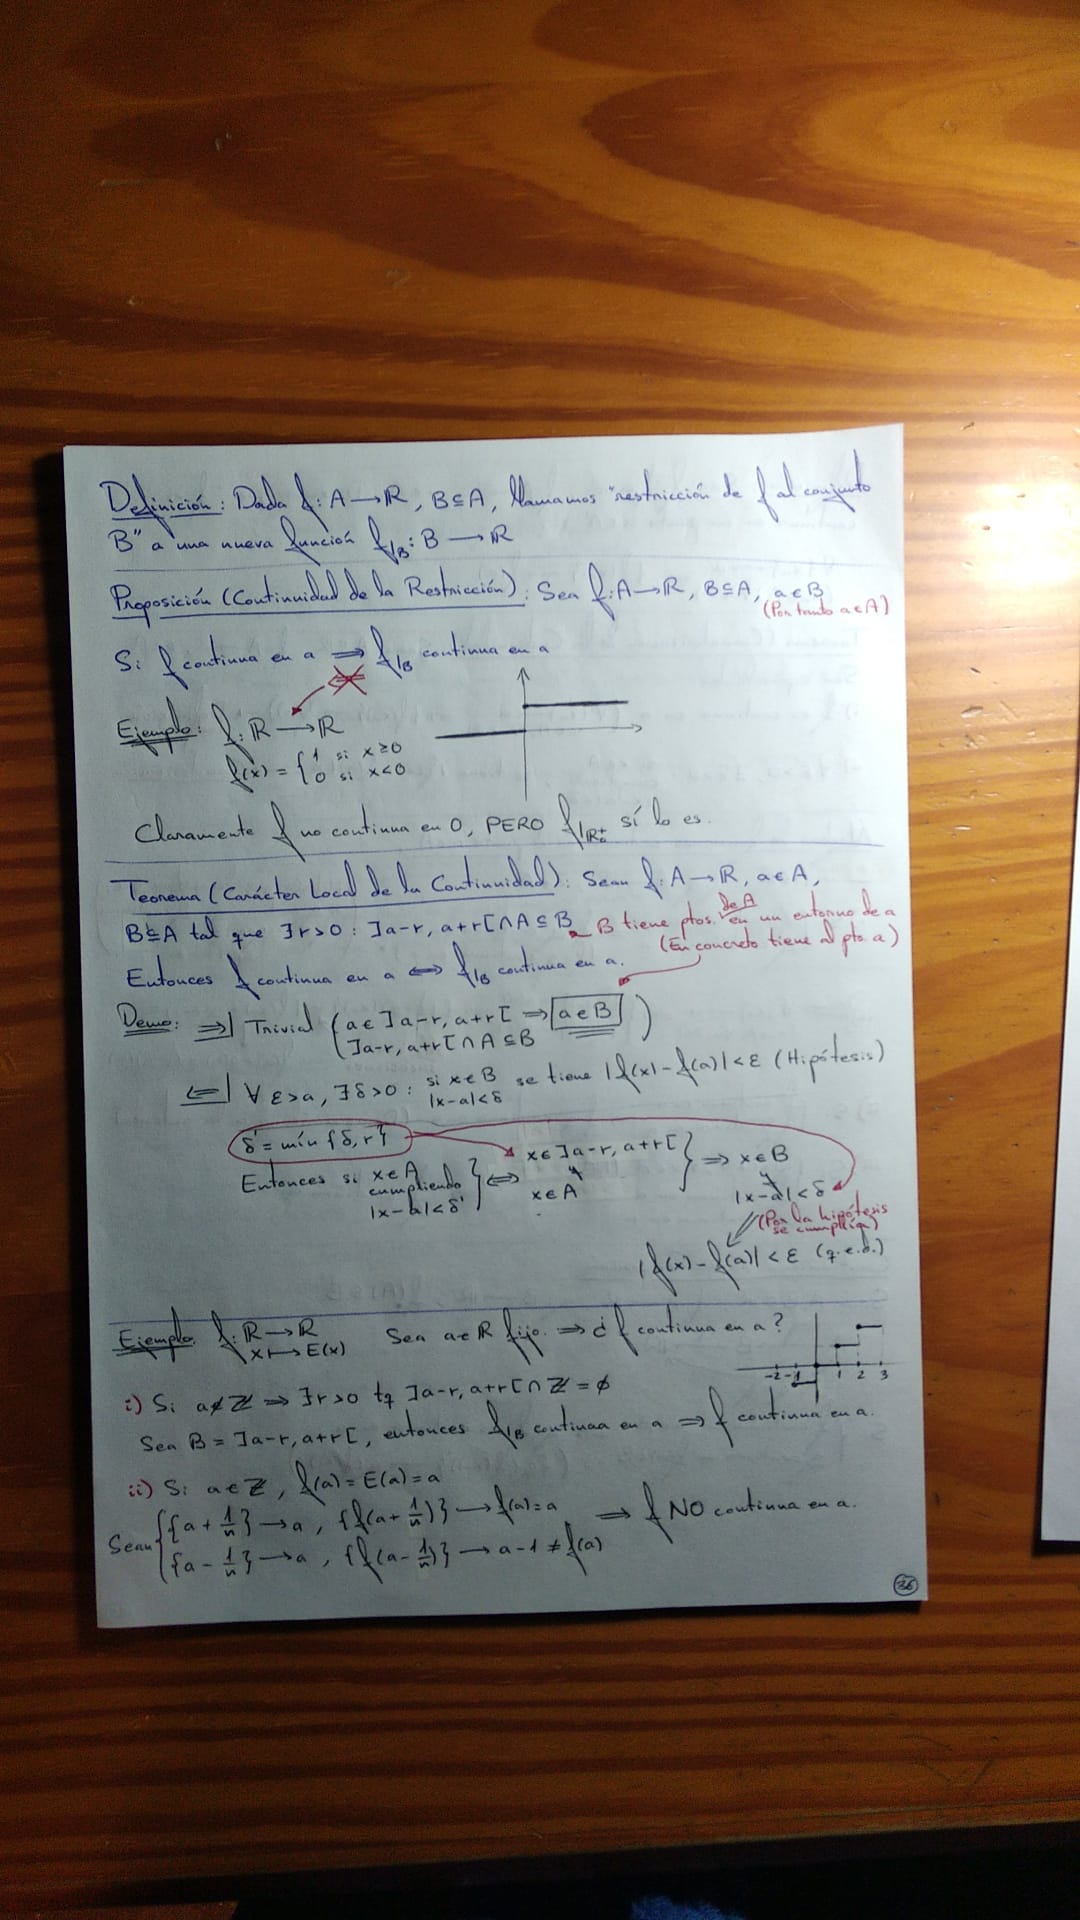 Definición: Dada f: A → ℝ, B ⊆ A, llamamos "restricción de f al conjunto
B" a una nueva función f|B: B → ℝ
Proposición (Continuidad de la Restricción): Sea f: A → ℝ, B ⊆ A, a ∈ B
(Por tanto a ∈ A)
Si f continua en a ⟹ f|B continua en a
Ejemplo: f: ℝ → ℝ
f(x) = { 1 si x ≥ 0
0 si x < 0
Claramente f no continua en 0, PERO f|ℝ₀⁺ sí lo es.
Teorema (Carácter Local de la Continuidad): Sean f: A → ℝ, a ∈ A,
B ⊆ A tal que ∃ r > 0 : ]a-r, a+r[ ∩ A ⊆ B B tiene ptos. de A en un entorno de a
(En concreto tiene al pto. a)
Entonces f continua en a ⟺ f|B continua en a.
Demo: ⟹| Trivial ( a ∈ ]a-r, a+r[ ⟹ a ∈ B )
]a-r, a+r[ ∩ A ⊆ B
⟸| ∀ ε > a, ∃ δ > 0 : si x ∈ B |x-a| < δ se tiene |f(x) - f(a)| < ε (Hipótesis)
δ' = mín {δ, r}
Entonces si x ∈ A cumpliendo |x-a| < δ' } ⟺ x ∈ ]a-r, a+r[ y x ∈ A } ⟹ x ∈ B y |x-a| < δ
(Por la hipótesis
se cumplía)
|f(x) - f(a)| < ε (q.e.d.)
Ejemplo. f: ℝ → ℝ Sea a ∈ ℝ fijo. ⟹ ¿f continua en a?
x ↦ E(x)
-2 -1 1 2 3
i) Si a ∉ ℤ ⟹ ∃ r > 0 tq ]a-r, a+r[ ∩ ℤ = ∅
Sea B = ]a-r, a+r[, entonces f|B continua en a ⟹ f continua en a.
ii) Si a ∈ ℤ, f(a) = E(a) = a
Sean { {a + 1/n} → a, {f(a + 1/n)} → f(a) = a ⟹ f NO continua en a.
{a - 1/n} → a, {f(a - 1/n)} → a-1 ≠ f(a)
36